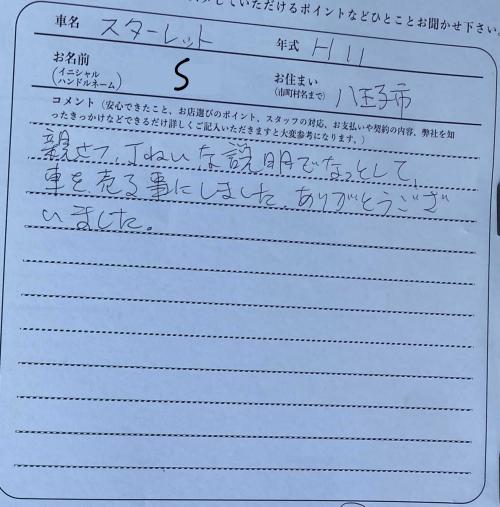 していただけるポイントなどひとことお聞かせ下さい。
車名 スターレット 年式 H11
お名前 (イニシャル ハンドルネーム) S お住まい (市町村名まで) 八王子市
コメント（安心できたこと、お店選びのポイント、スタッフの対応、お支払いや契約の内容、弊社を知
ったきっかけなどできるだけ詳しくご記入いただきますと大変参考になります。）
親せつ、丁ねいな説明でなっとして、
車を売る事にしました。ありがとうござ
いました。